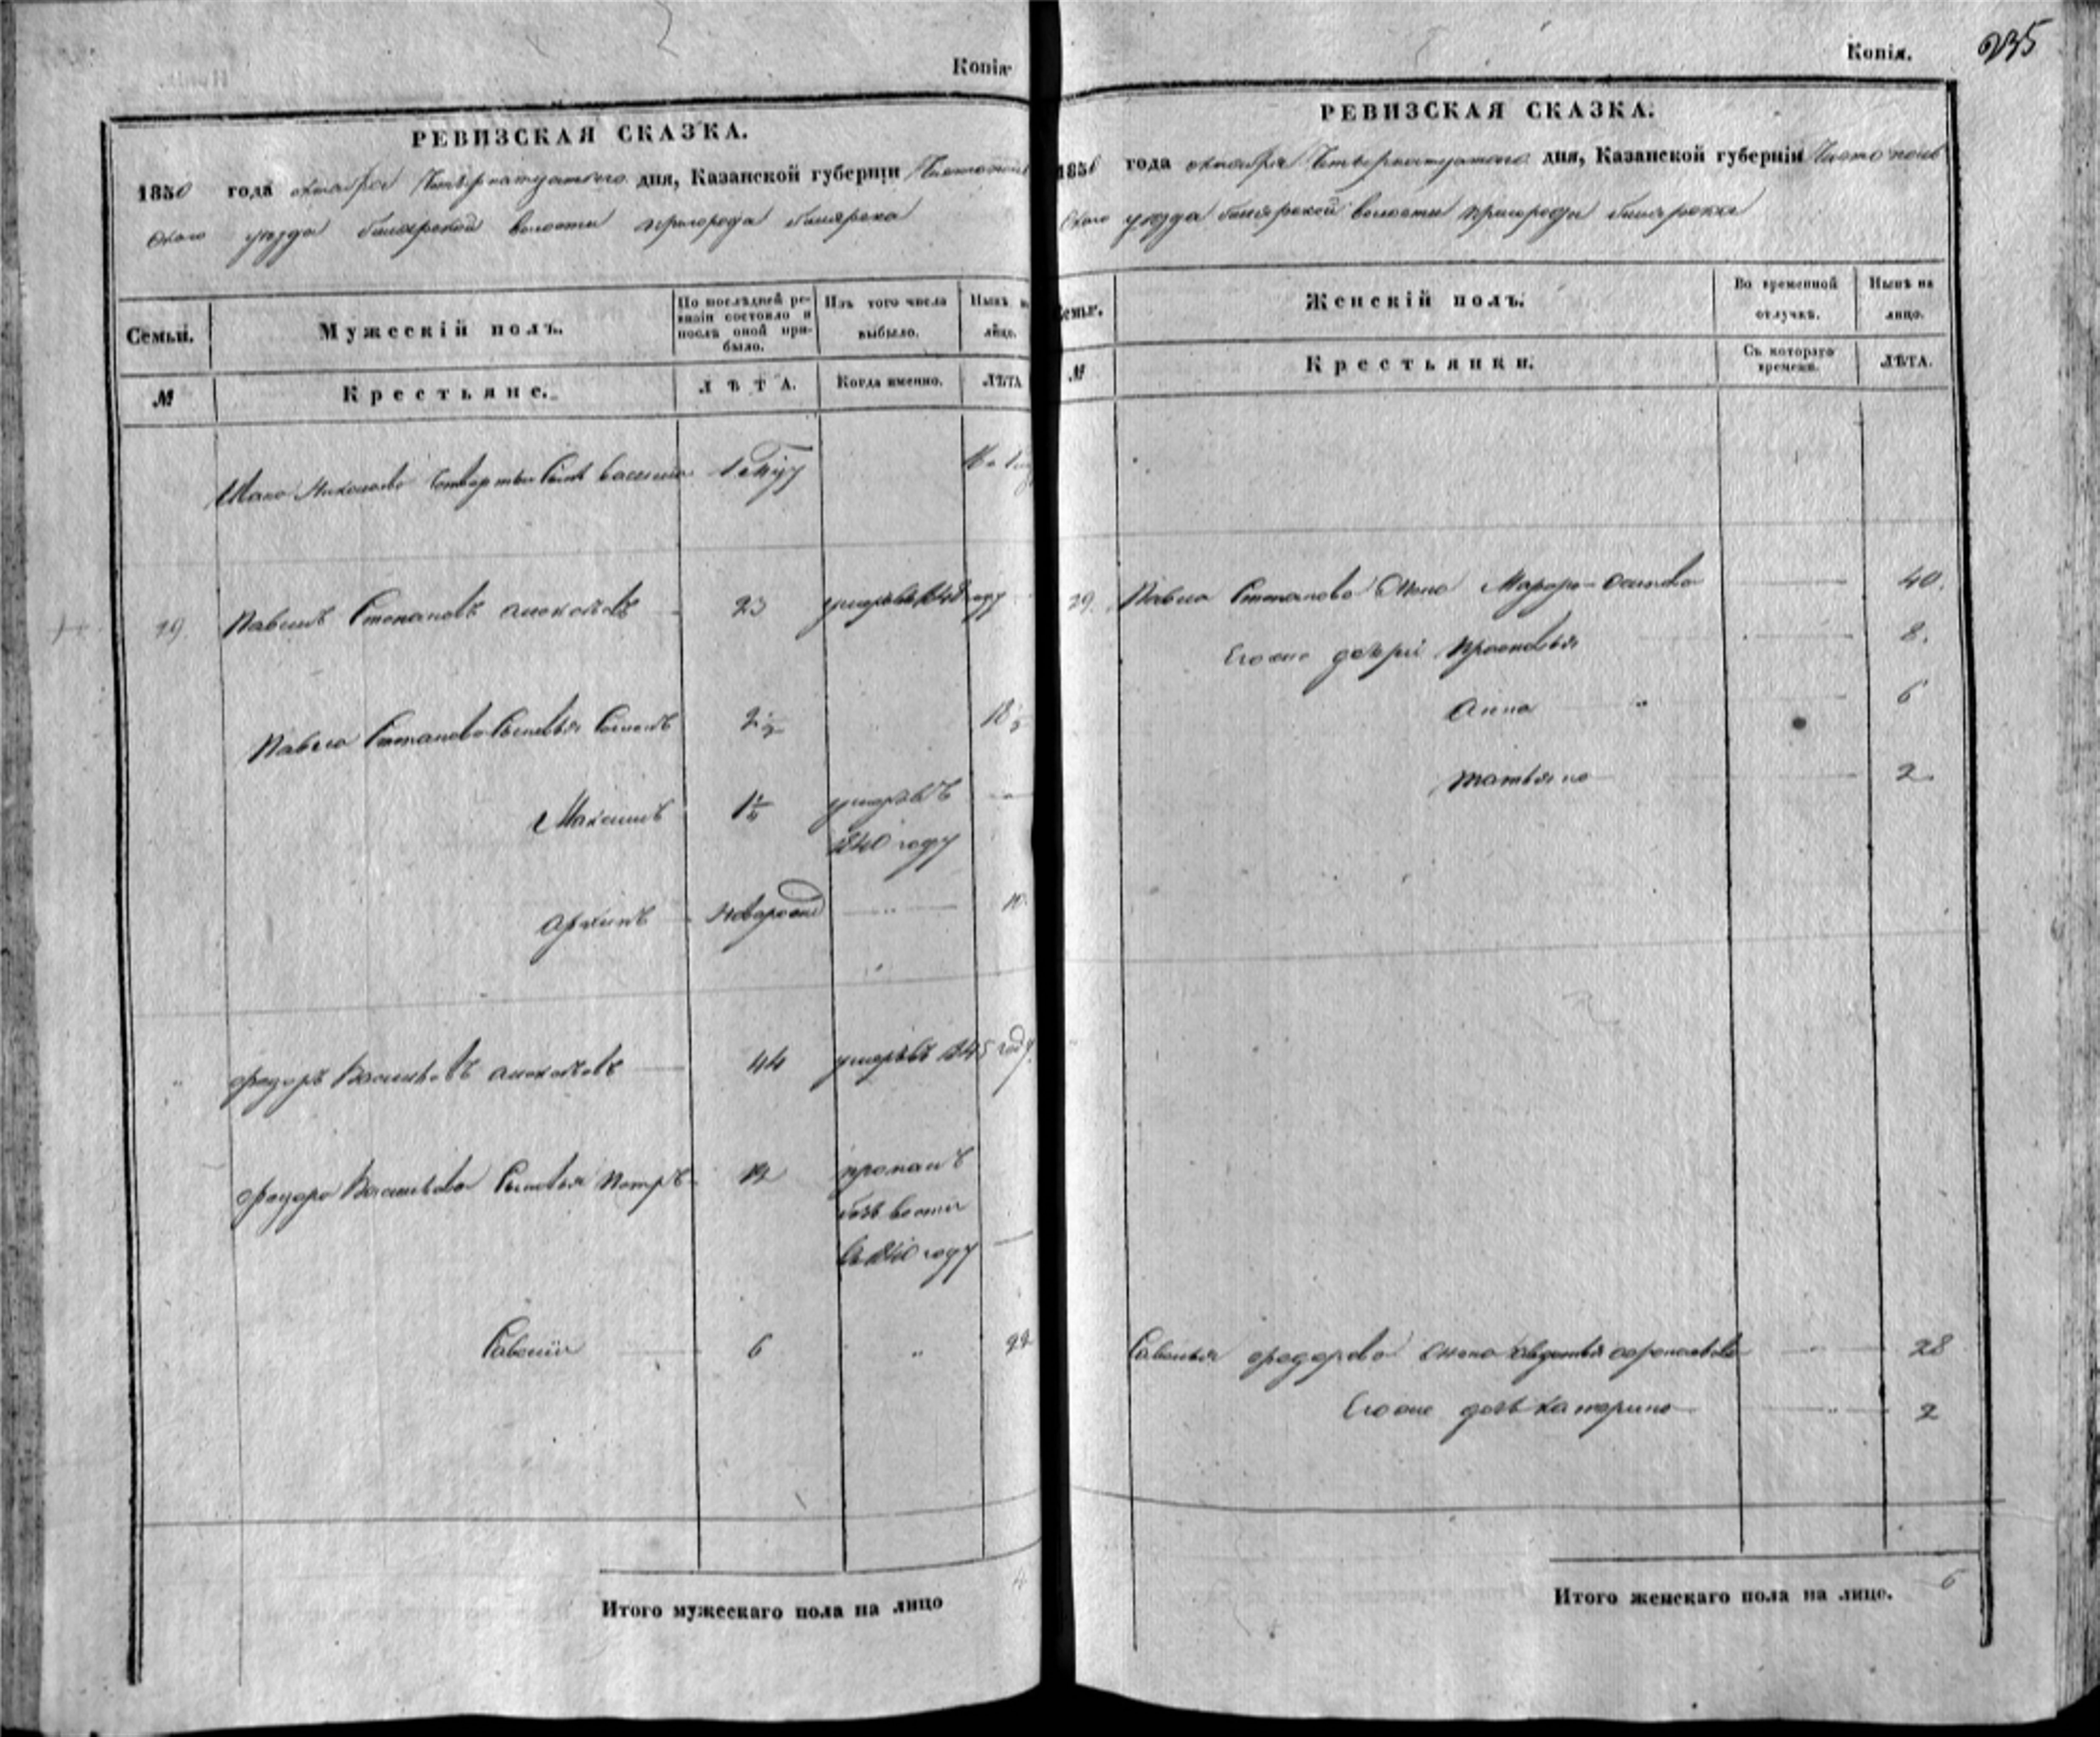 Копія
РЕВИЗСКАЯ СКАЗКА.
1850 года октября дня, Казанской губерніи Чистополь
скаго уезда билярской волости пригорода билярска
Семьи.
Мужескій полъ.
По послѣдней ре-
визіи состояло и
послѣ оной при-
было.
Изъ того числа
выбыло.
Нынѣ на
лицо.
№
Крестьяне.
ЛѢТА.
Когда именно.
ЛѢТА
сынъ
29. Павелъ Степановъ 23 умеръ въ году
Павла Степанова Сыновья 2 1/2 18 1/2
Максимъ умеръ въ
1840 году
Архипъ новорож 10
Федоръ Васильевъ 44 умеръ въ 1845 году
Федора Васильева Сыновья Петръ 12 пропалъ
безъ вести
въ 1840 году
Савелій 6 " 22
Итого мужескаго пола на лицо
4
Копія.
235
РЕВИЗСКАЯ СКАЗКА.
1850 года октября дня, Казанской губерніи Чистополь
скаго уезда билярской волости пригорода билярска
Семьи.
Женскій полъ.
Во временной
отлучкѣ.
Нынѣ на
лицо.
№
Крестьянки.
Съ котораго
времени.
ЛѢТА.
29. Павла Степанова жена Марфа Осипова 40.
Его же дочери Прасковья 8.
Анна " 6
Татьяна 2
Савелья Федорова жена авдотья 28
Его же дочь катерина 2
Итого женскаго пола на лицо.
6